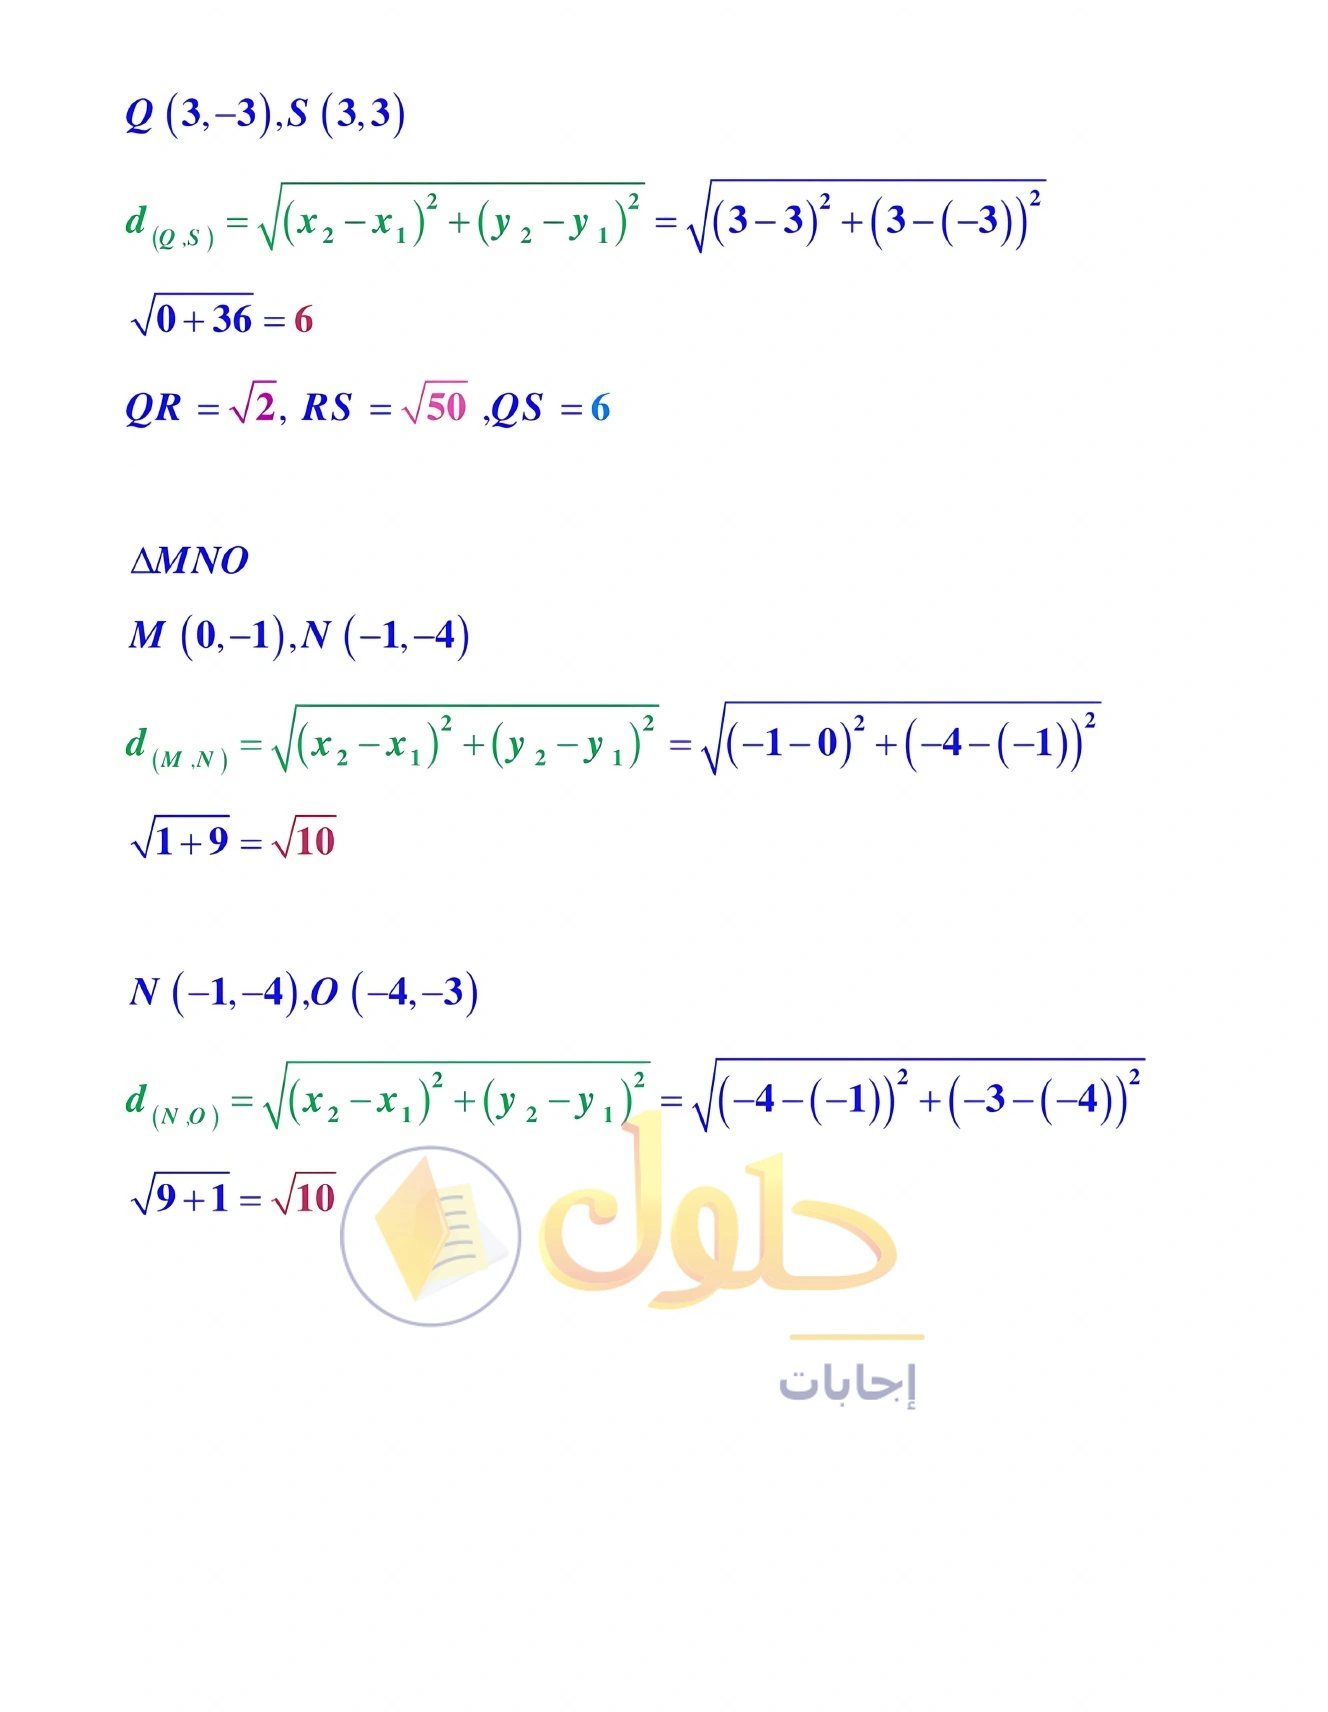 Q (3,−3),S (3,3)
d (Q ,S ) = √((x₂ − x₁)² + (y₂ − y₁)²) = √((3 − 3)² + (3 − (−3))²)
√(0 + 36) = 6
QR = √2, RS = √50 ,QS = 6
ΔMNO
M (0,−1),N (−1,−4)
d (M ,N ) = √((x₂ − x₁)² + (y₂ − y₁)²) = √((−1 − 0)² + (−4 − (−1))²)
√(1 + 9) = √10
N (−1,−4),O (−4,−3)
d (N ,O ) = √((x₂ − x₁)² + (y₂ − y₁)²) = √((−4 − (−1))² + (−3 − (−4))²)
√(9 + 1) = √10
حلول
إجابات